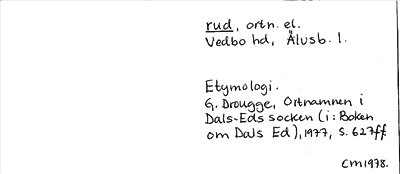 rud, ortn. el.
Vedbo hd, Älvsb. l.
Etymologi.
G. Drougge, Ortnamnen i
Dals-Eds socken (i: Boken
om Dals Ed), 1977, s. 627ff
CM1978.